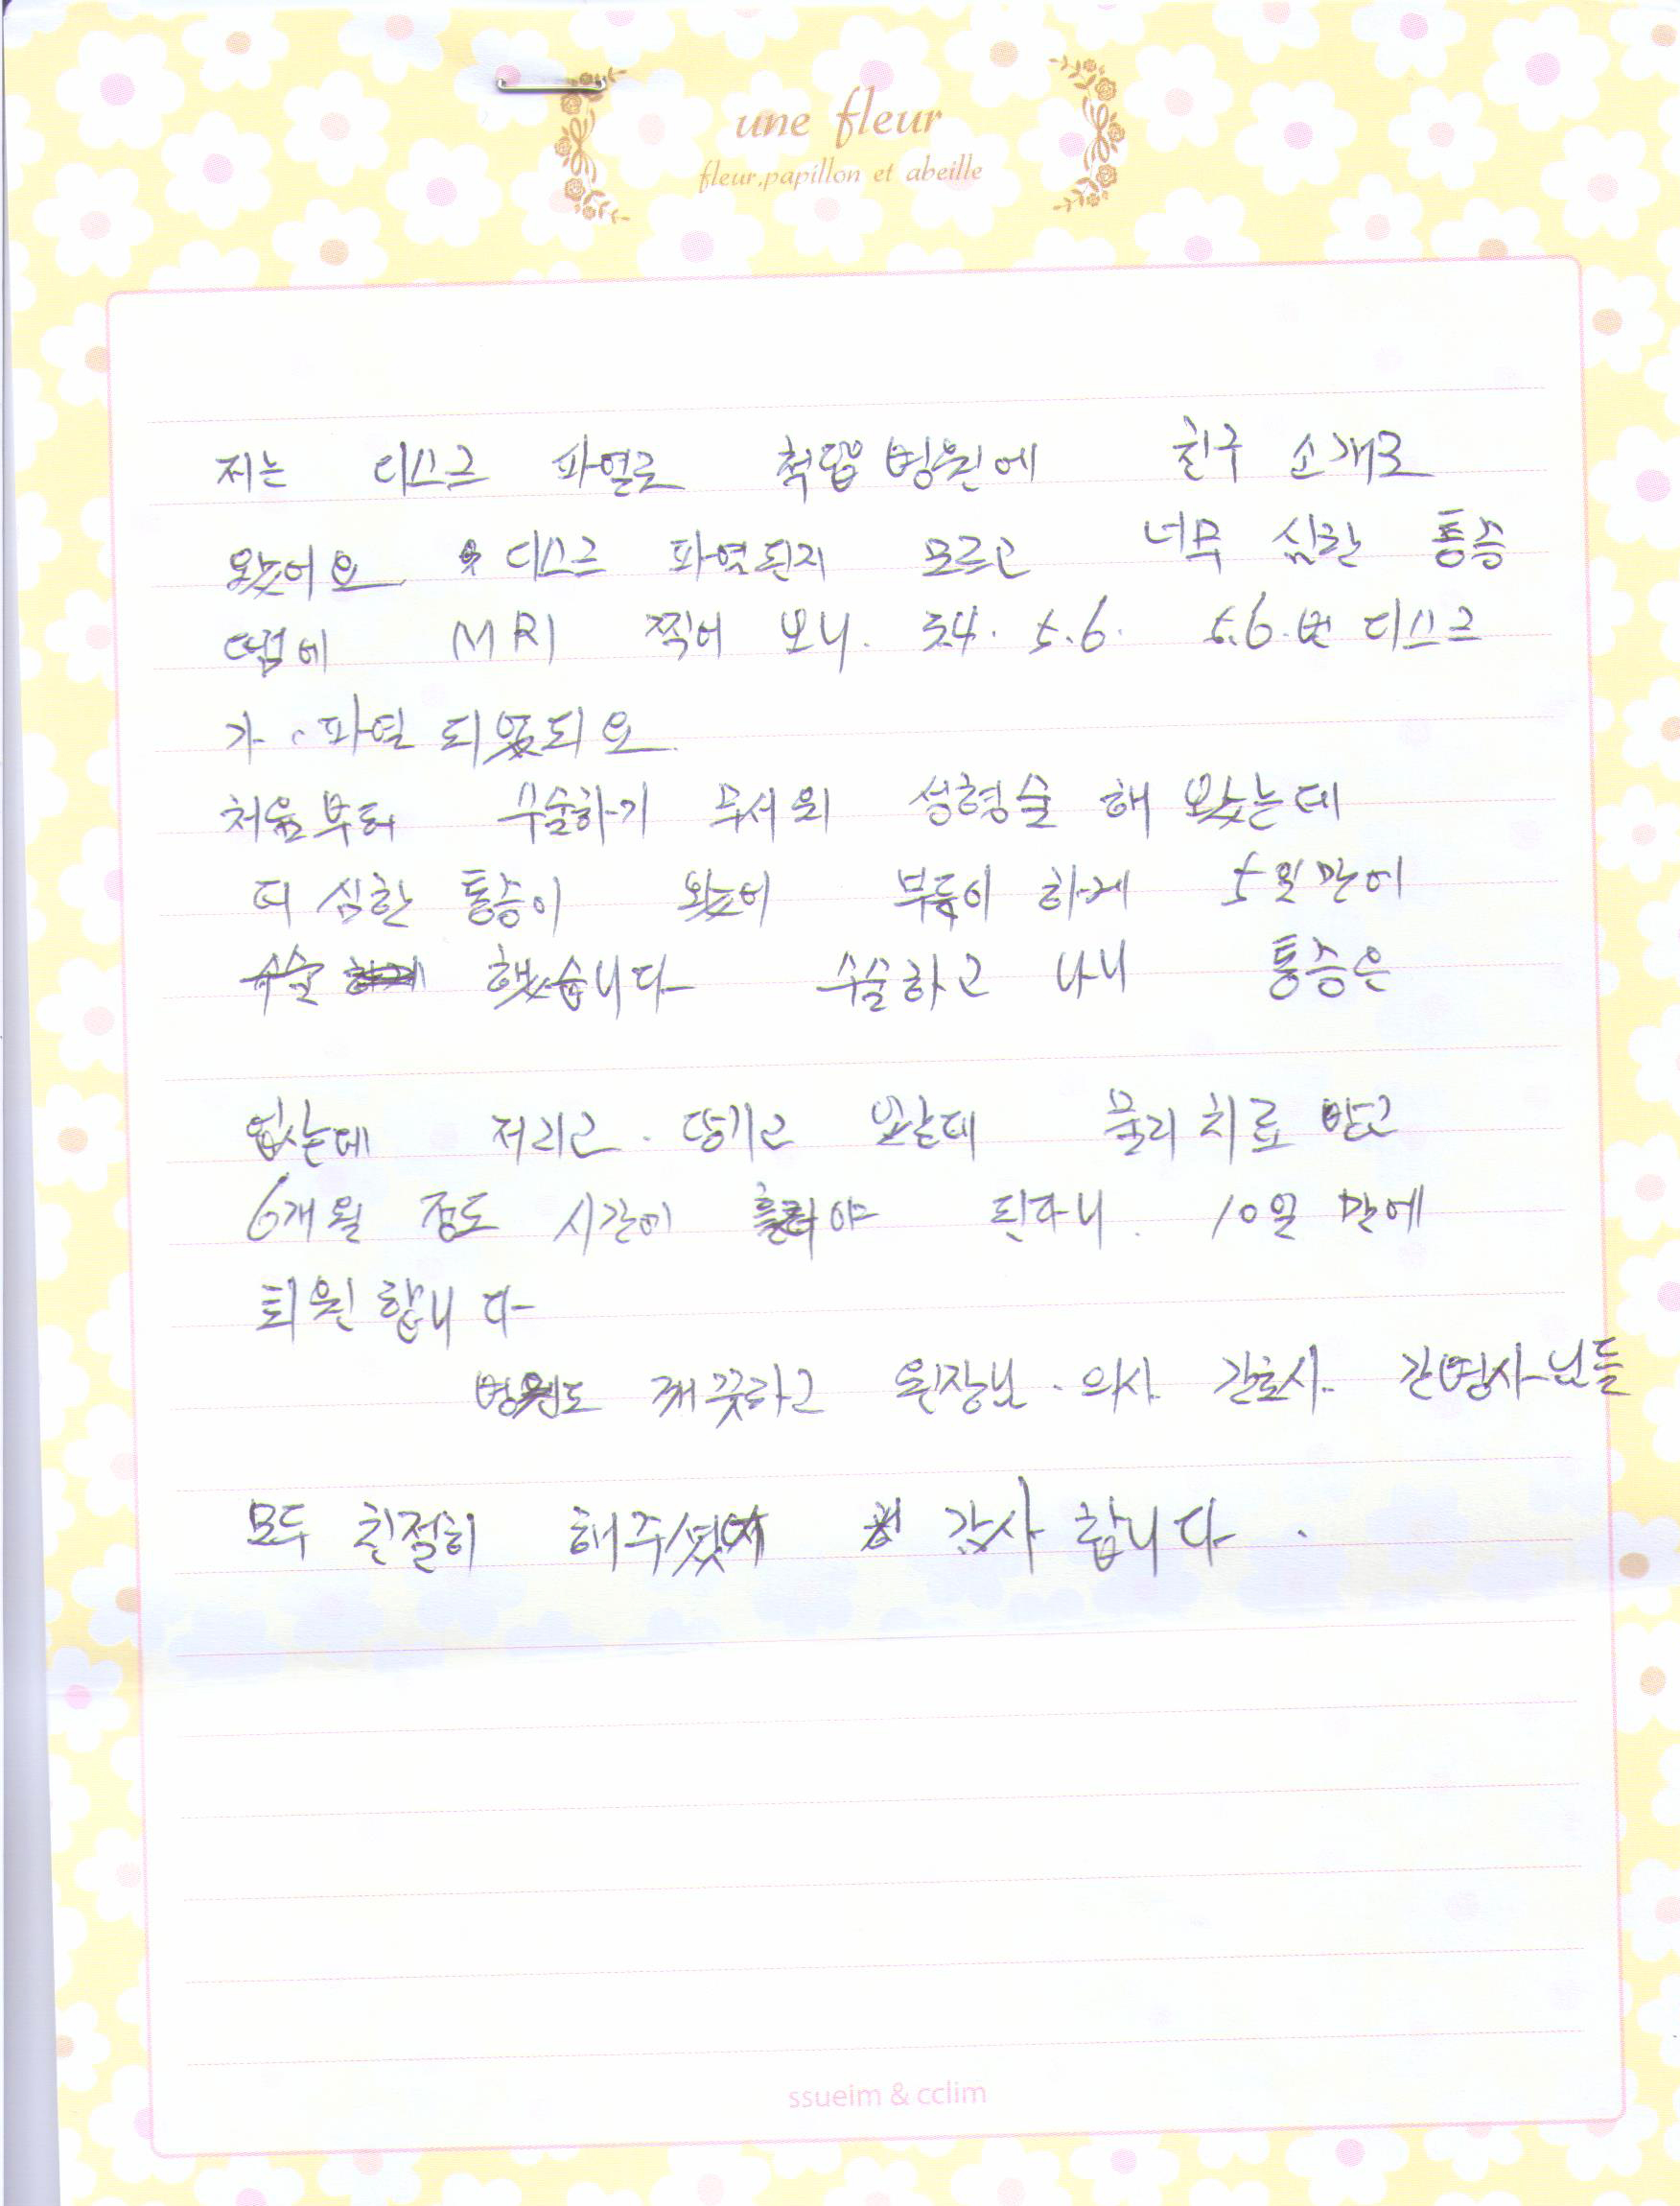 une fleur
fleur.papillon et abeille
저는 디스크 파열로 척탑병원에 친구 소개로
왔어요 디스크 파열된지 모르고 너무 심한 통증
땜에 MRI 찍어 보니. 5.6. 5.6.번 디스크
가 파열 되
처음부터 수술하기 무서워 성형술 해 보았는데
더 심한 통증이 와서 부득이 하게 5일만에
수술 했습니다 수술하고 나니 통증은
없는데 저리고. 땅기고 물리치료 받고
6개월 정도 시간이 흘러야 된다니. 10일 만에
퇴원합니다
병원도 깨끗하고 원장님. 의사 간호사 간병사님들
모두 친절히 해주셨어 감사합니다.
ssueim & cclim